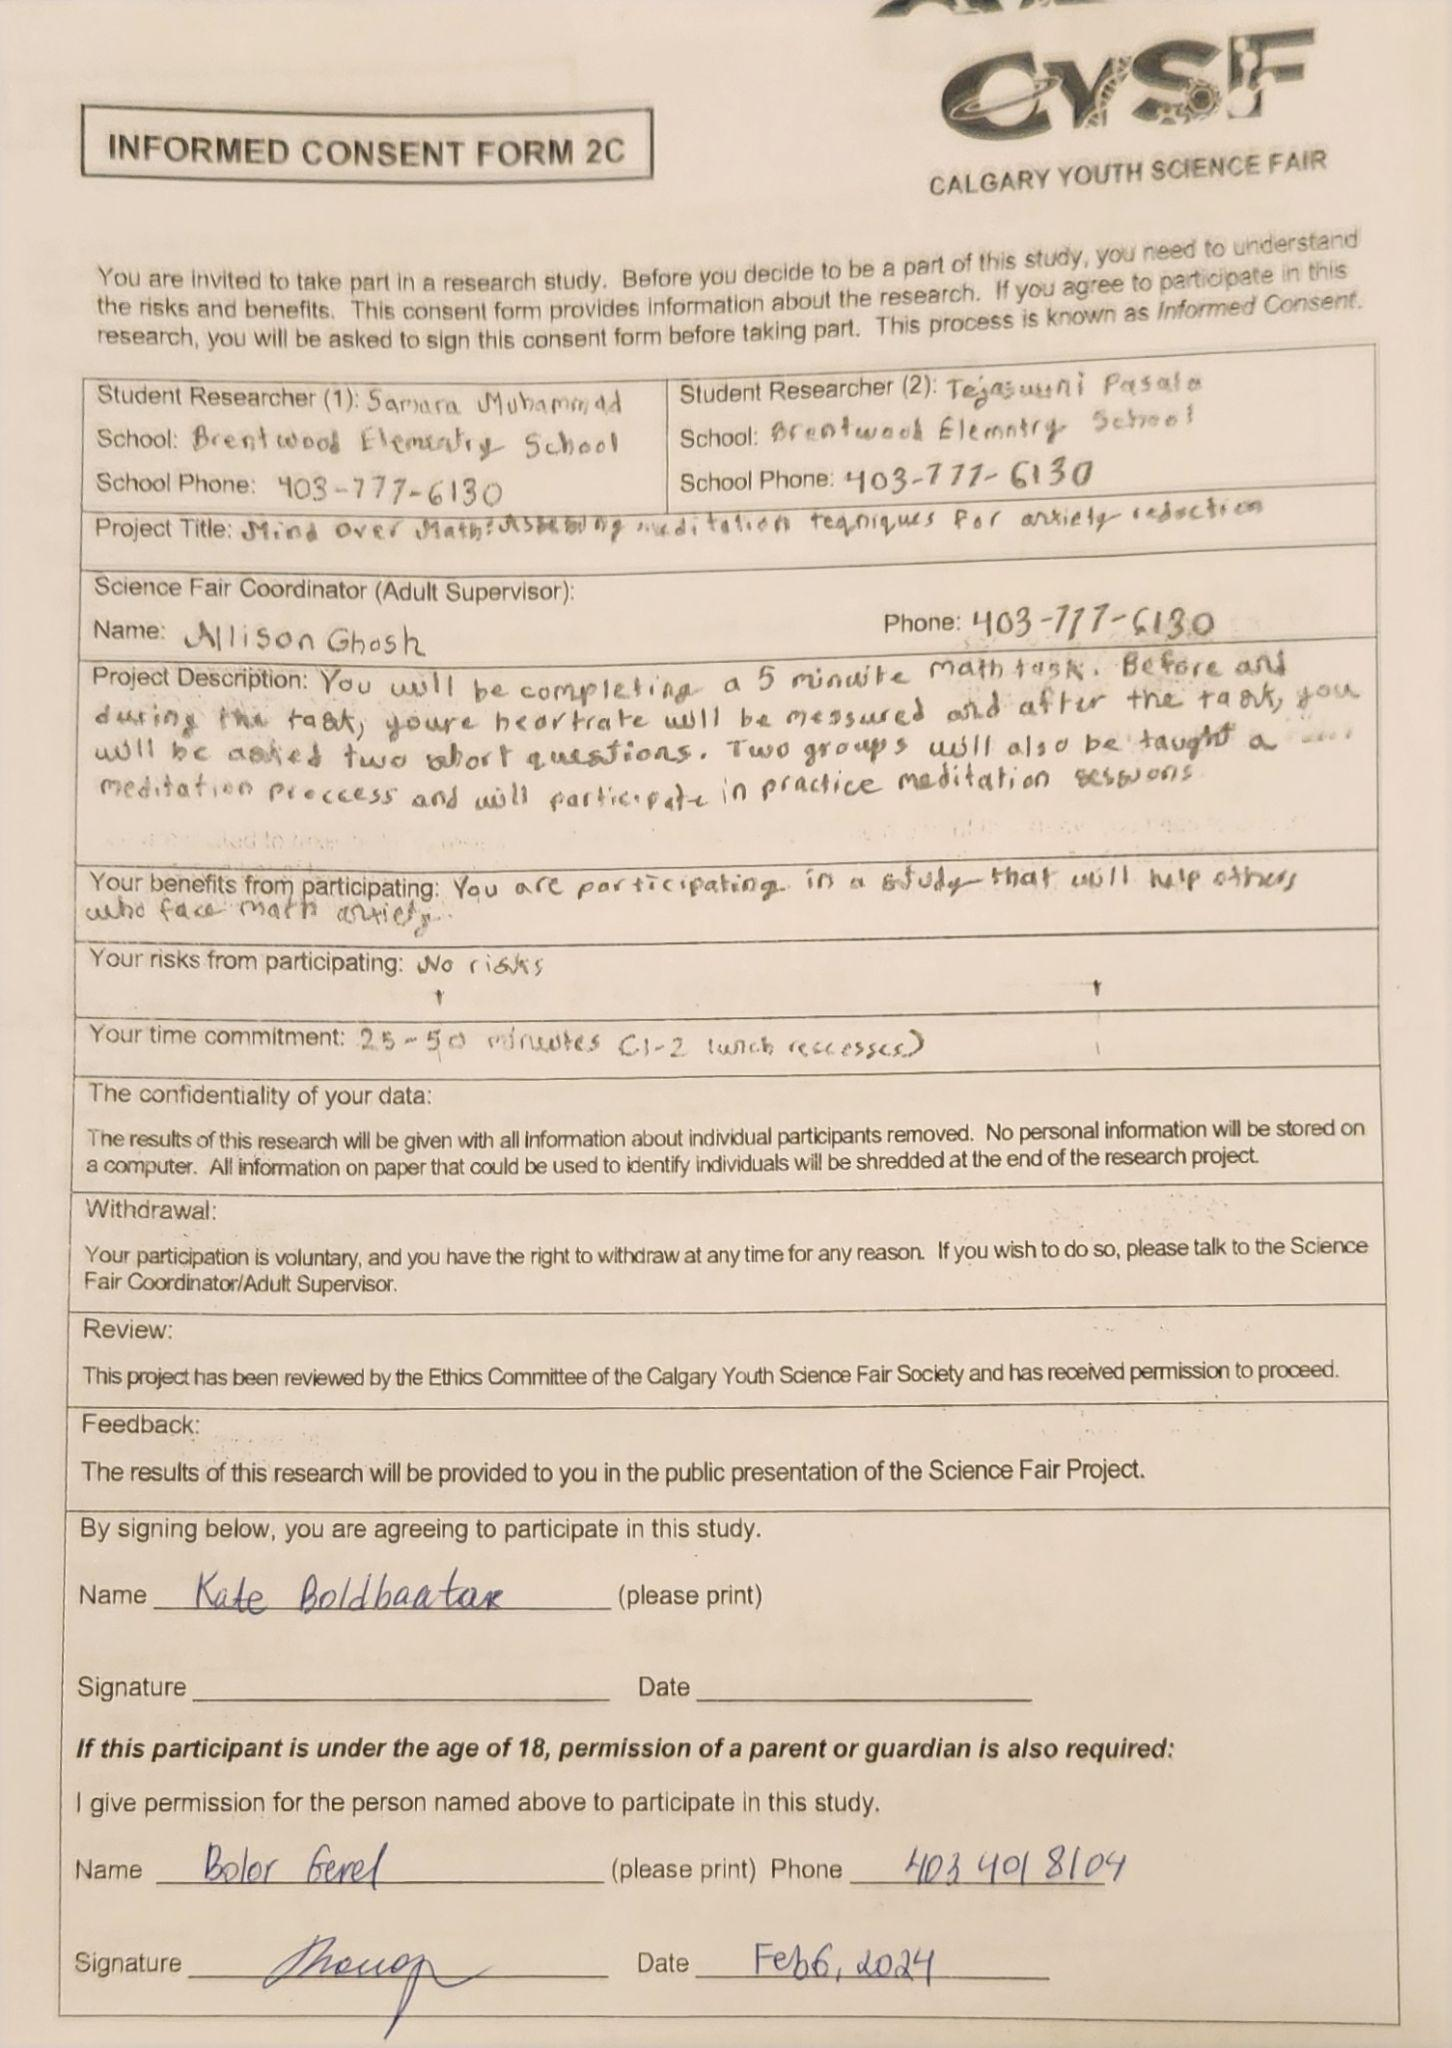 CYSF
CALGARY YOUTH SCIENCE FAIR
INFORMED CONSENT FORM 2C
You are invited to take part in a research study. Before you decide to be a part of this study, you need to understand
the risks and benefits. This consent form provides information about the research. If you agree to participate in this
research, you will be asked to sign this consent form before taking part. This process is known as Informed Consent.
Student Researcher (1): Samara Muhammad
School: Brentwood Elementry School
School Phone: 403-777-6130
Student Researcher (2): Tejaswini Pasala
School: Brentwood Elemntry School
School Phone: 403-777-6130
Project Title: Mind Over Math: Assessing meditation teqniques for anxiety reduction
Science Fair Coordinator (Adult Supervisor):
Name: Allison Ghosh Phone: 403-777-6130
Project Description: You will be completing a 5 minuite math task. Before and
during the task, youre heartrate will be messured and after the task, you
will be asked two short questions. Two groups will also be taught a
meditation proccess and will participate in practice meditation sessions
Your benefits from participating: You are participating in a study that will help others
who face math anxiety.
Your risks from participating: No risks
Your time commitment: 25-50 minutes (1-2 lunch recesses)
The confidentiality of your data:
The results of this research will be given with all information about individual participants removed. No personal information will be stored on
a computer. All information on paper that could be used to identify individuals will be shredded at the end of the research project.
Withdrawal:
Your participation is voluntary, and you have the right to withdraw at any time for any reason. If you wish to do so, please talk to the Science
Fair Coordinator/Adult Supervisor.
Review:
This project has been reviewed by the Ethics Committee of the Calgary Youth Science Fair Society and has received permission to proceed.
Feedback:
The results of this research will be provided to you in the public presentation of the Science Fair Project.
By signing below, you are agreeing to participate in this study.
Name Kate Boldbaatar (please print)
Signature Date
If this participant is under the age of 18, permission of a parent or guardian is also required:
I give permission for the person named above to participate in this study.
Name Bolor Gerel (please print) Phone 403 401 8104
Signature Date Feb 6, 2024